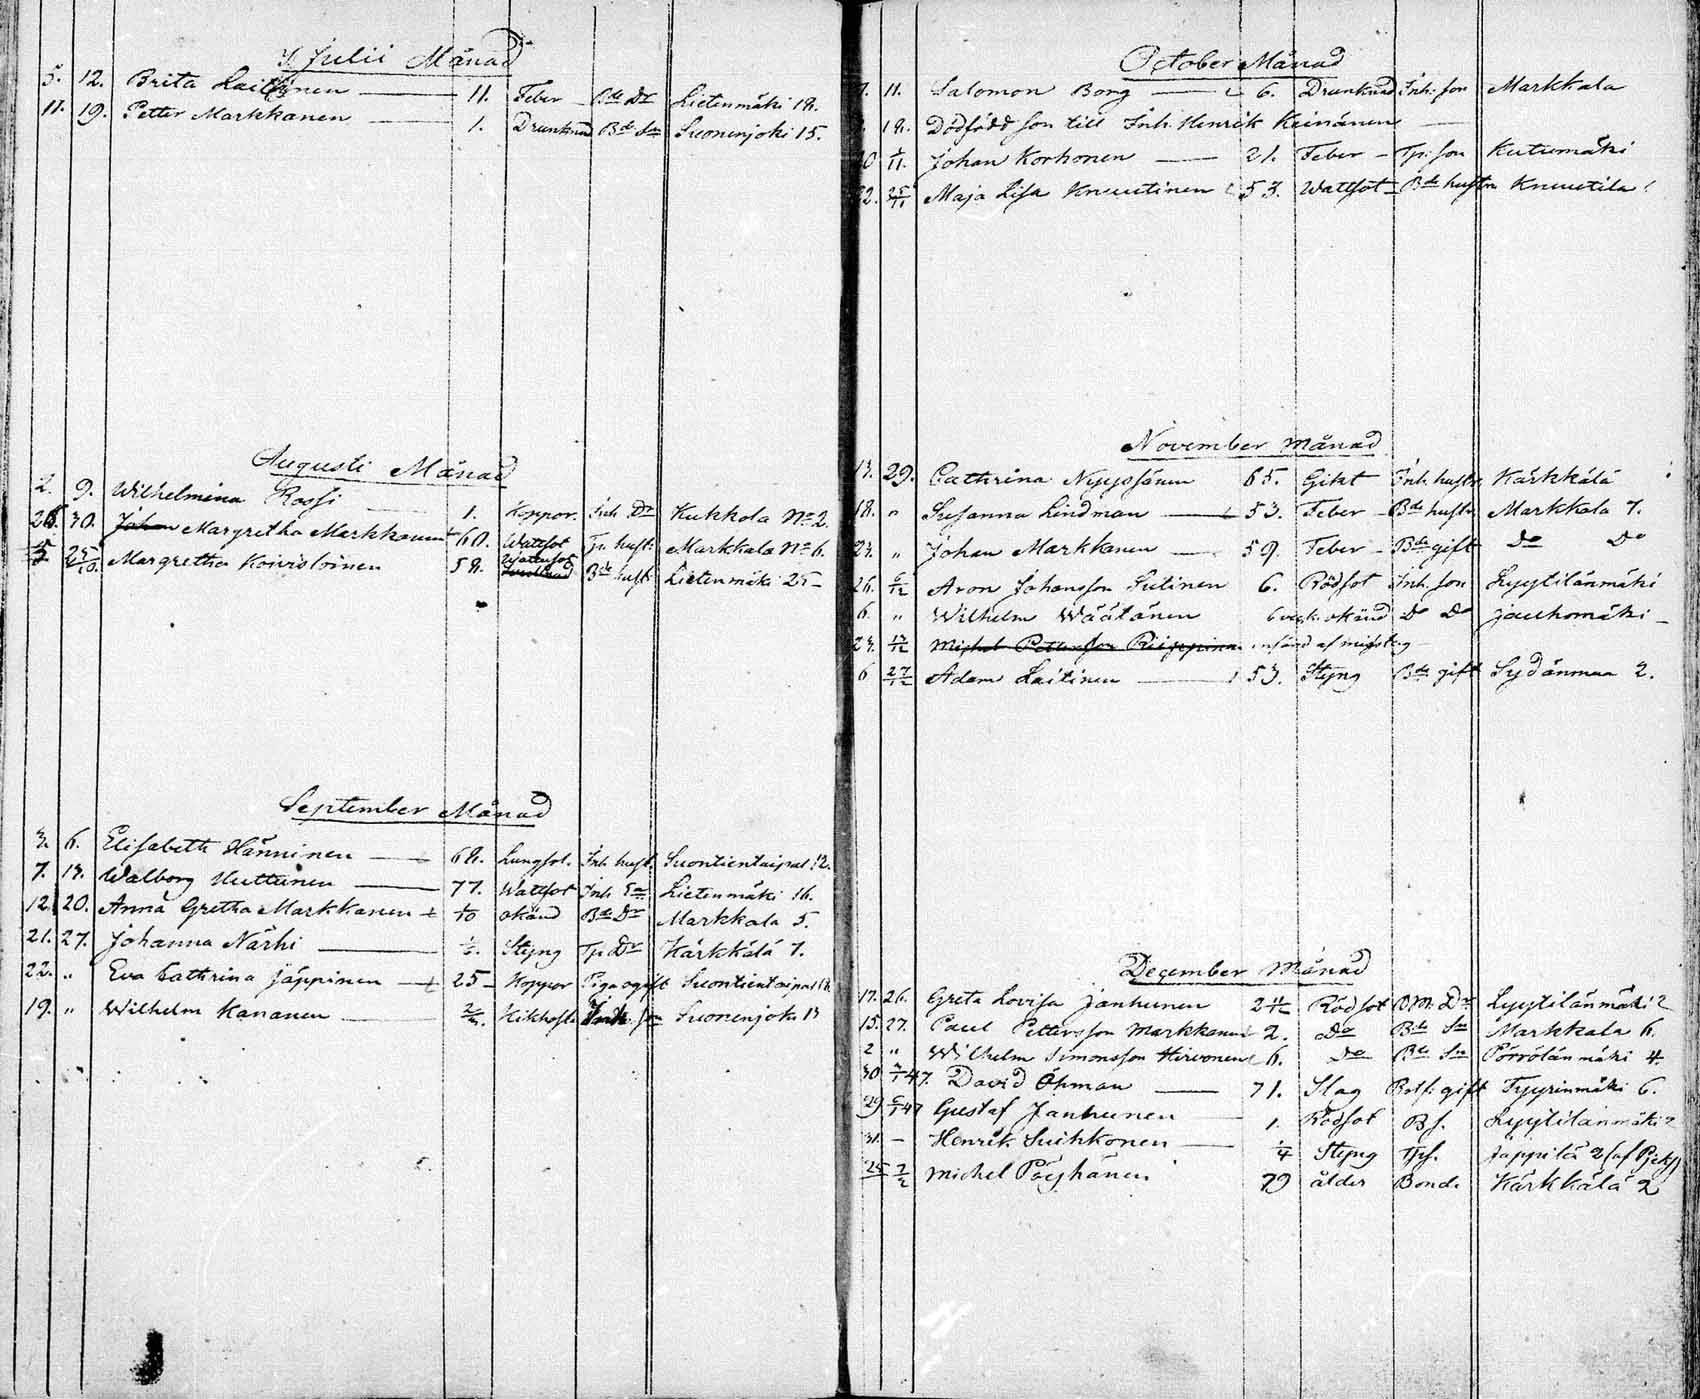 I Julii Månad
5. 12. Brita Laitinen 11. Feber Bde Dr Lietenmäki 18.
11. 19. Petter Markkanen 1. Drunknad Bde Sn Suonenjoki 15.
Augusti Månad
2. 9. Wilhelmina Rossi 1. Koppor. Inh. Dr Kukkola No 2.
26. 30. Margretha Markkanen 60. Wattsot Tp. hust. Markkala No 6.
5 25/10 Margretha Koivistoinen 58. Wattusot Bde hust Lietenmäki 25
September Månad
3. 6. Elisabeth Hänninen 68. Lungsot. Inh. hust. Suontientaipal 12.
7. 13. Walborg Huttunen 77. Wattsot Inh. Lietenmäki 16.
12. 20. Anna Gretha Markkanen 1/10 okänd Bde Dr Markkala 5.
21. 27. Johanna Närhi Styng Tp. Dr Kärkkälä 7.
22. " Eva Cathrina Jäppinen 25 Koppor Piga ogift Suontientaipal
19. " Wilhelm Kananen Kikhosta Inh. son Suonenjoki 13
October Månad
11. Salomon Borg 6. Drunknad Inh. son Markkala
18. Dödfödd son till Inh. Henrik Keinänen
1/11. Johan Korhonen 21. Feber Tp. son Kutumäki
25/11 Maja Lisa Knuutinen 53. Wattsot Bde hustru Knuutila
November Månad
13. 29. Cathrina Nyyssönen 65. Gikt Inh. hustr. Kärkkälä
18. " Susanna Lindman 53. Feber Bde hustr. Markkala 7.
23. " Johan Markkanen 59. Feber Bde gift Do Do
26. 6/12 Aron Johansson Sutinen 6. Rödsot Inh. son Lyytilänmäki
6. " Wilhelm Wäätänen 6 veck. okänd Do Do Jauhomäki
23. 13/12 införd af misstag
6 27/12 Adam Laitinen 53. Styng Bde gift Sydänmaa 2.
December Månad
17. 26. Greta Lovisa Janhunen 2 11/12 Rödsot Dr Lyytilänmäki 2
15. 27. Paul Pettersson Markkanen 2. Do Bde Sn Markkala 6.
2 " Wilhelm Simonsson Hirvonen 6. Do Bde Sn Pörrölänmäki 4.
30 47. David Öhman 71. Slag gift Tyyrinmäki 6.
29 6/1 47 Gustaf Janhunen 1. Rödsot Bs. Lyytilänmäki 2
31. – Henrik Suihkonen 1/4 Styng Jäppilä 2 (af Pjeks)
25 7/2 Michel Pöyhänen 79 ålder Bonde Kärkkälä 2